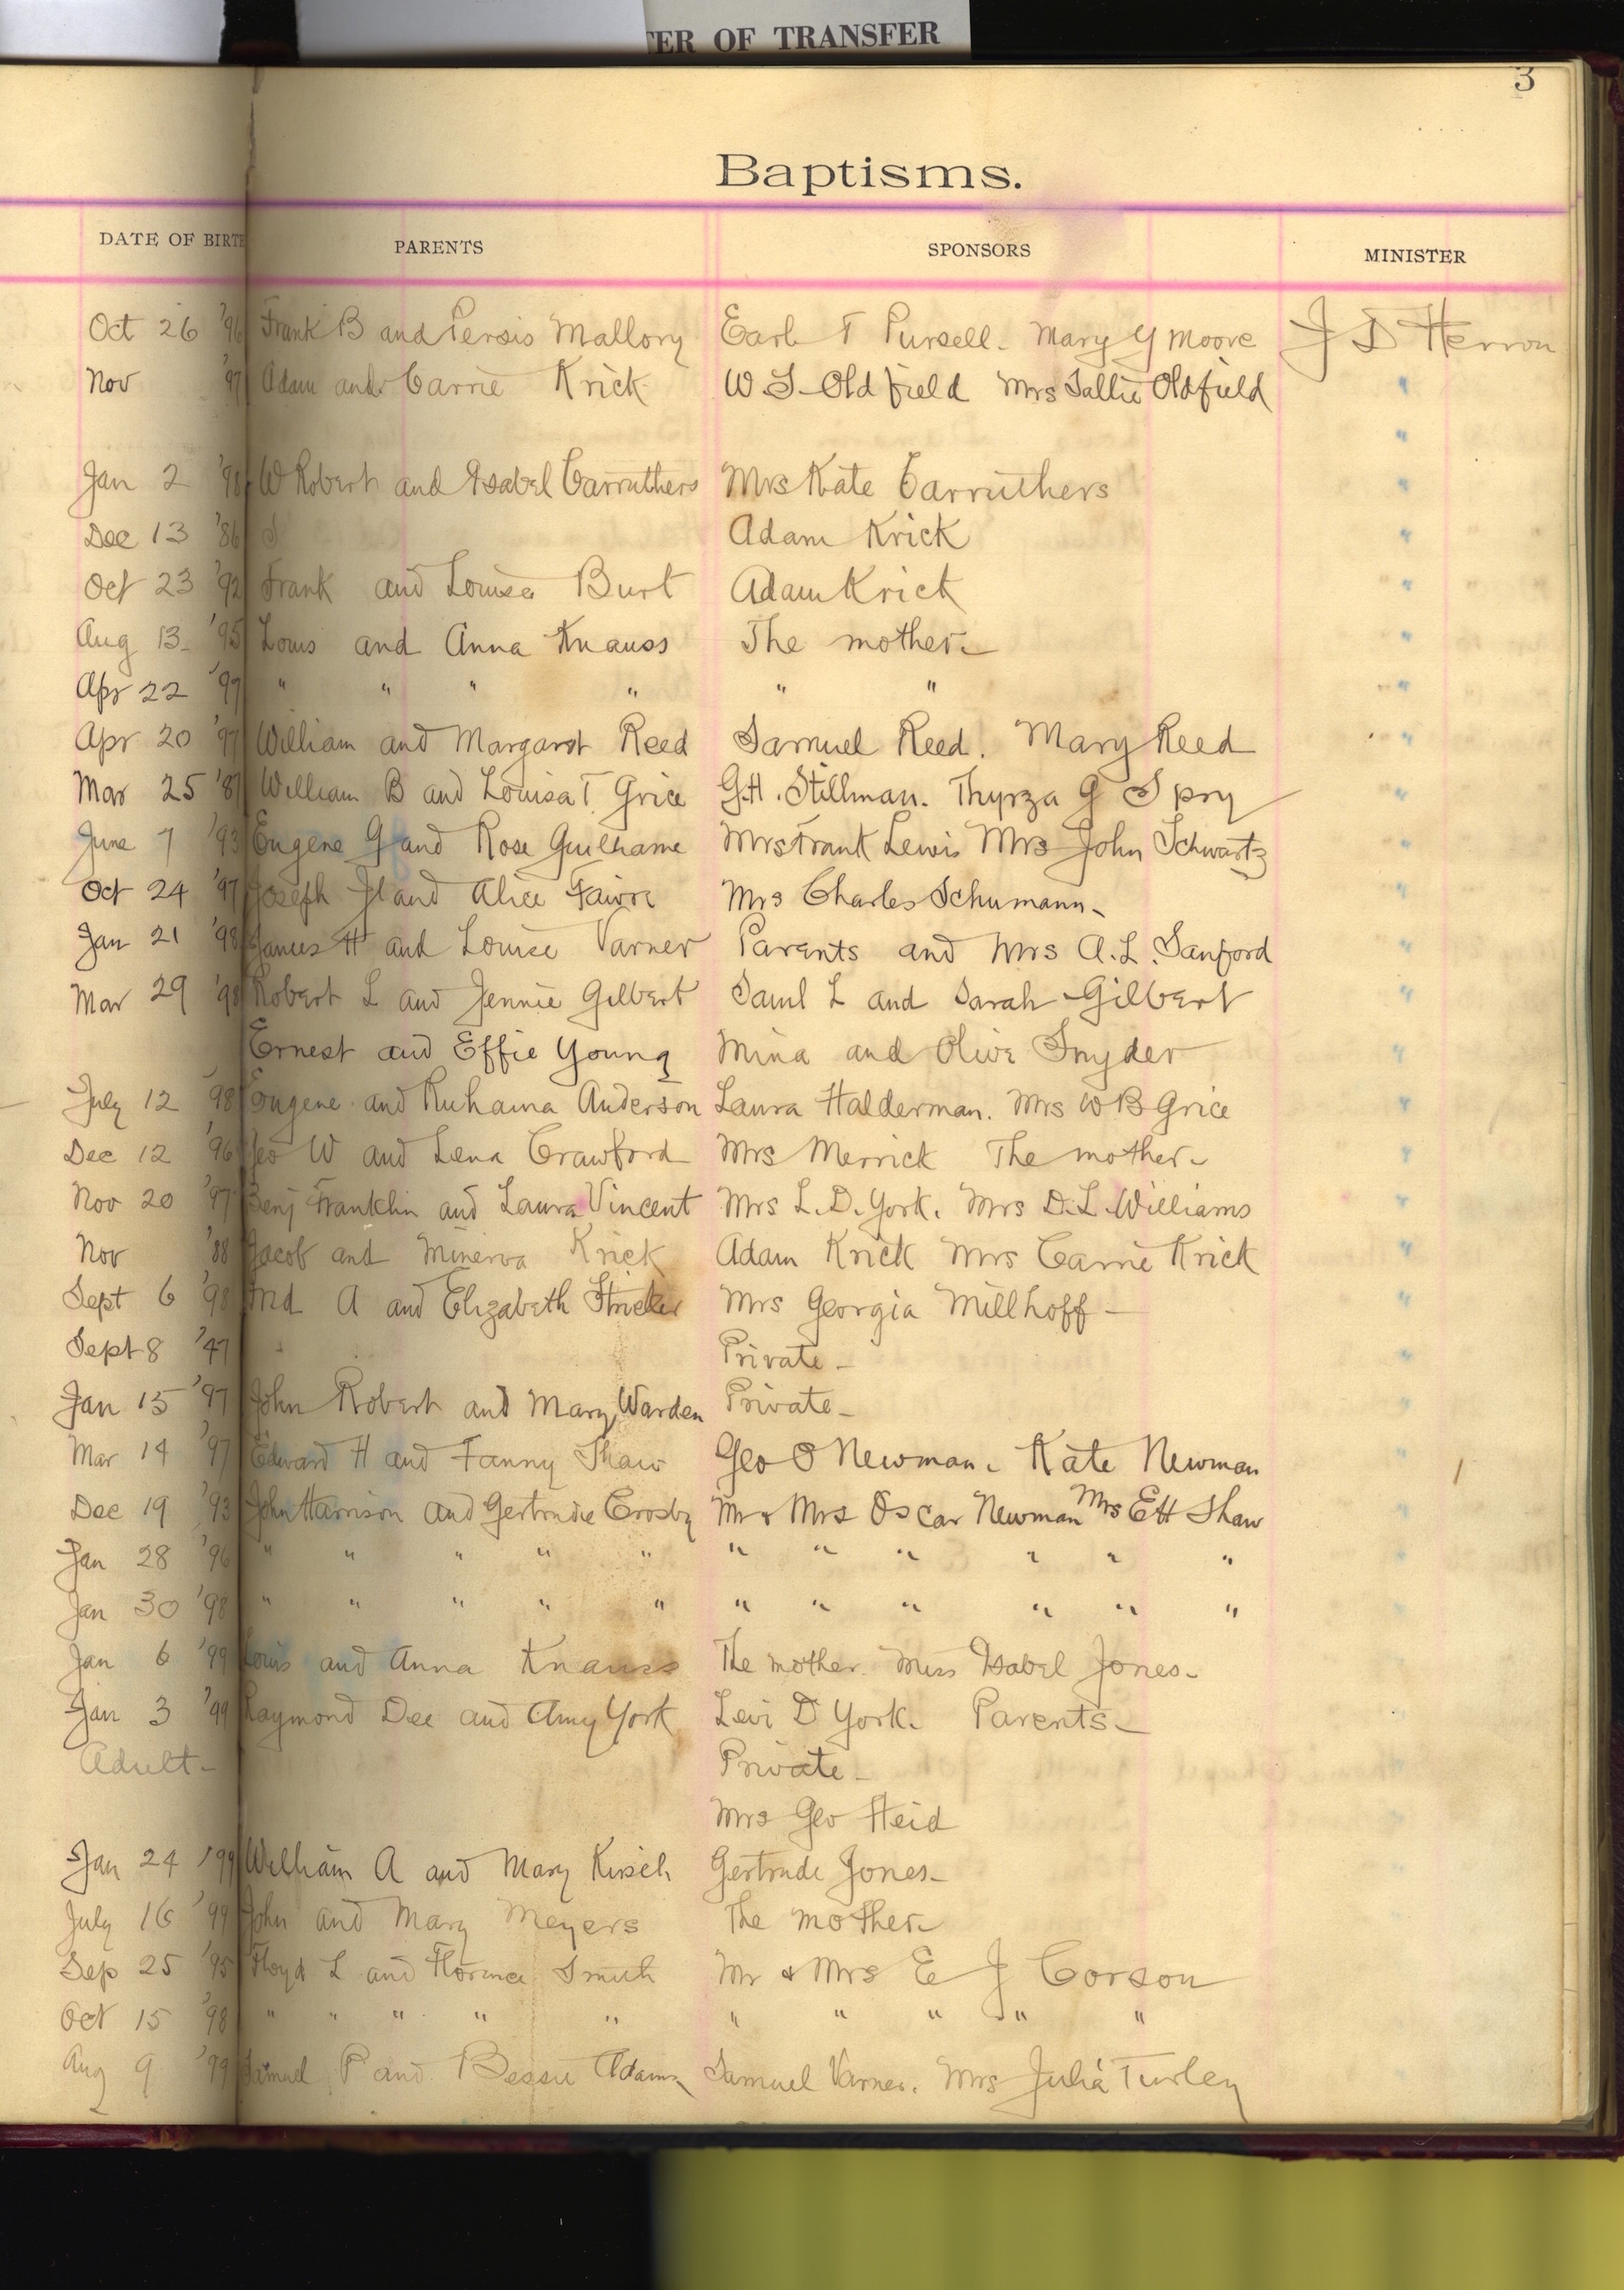 TER OF TRANSFER
3
Baptisms.
DATE OF BIRTH PARENTS SPONSORS MINISTER
Oct 26 '96 Frank B and Persis Mallory Earl T Pursell. Mary Y Moore J D Herron
Nov '97 Adam and Carrie Krick W S Oldfield Mrs Sallie Oldfield "
"
Jan 2 '98 W Robert and Isabel Carruthers Mrs Kate Carruthers "
Dec 13 '86 Adam Krick "
Oct 23 '92 Frank and Louisa Burt Adam Krick "
Aug 13 '95 Louis and Anna Knauss The mother "
Apr 22 '97 " " " " " " "
Apr 20 '97 William and Margaret Reed Samuel Reed. Mary Reed "
Mar 25 '87 William B and Louisa T Grice G.H. Stillman. Thyrza G Spry "
June 7 '93 Eugene G and Rose Guilhame Mrs Frank Lewis Mrs John Schwartz "
Oct 24 '97 Joseph and Alice Faivre Mrs Charles Schumann "
Jan 21 '98 James H and Louise Varner Parents and Mrs A.L. Sanford "
Mar 29 '98 Robert L and Jennie Gilbert Saml L and Sarah Gilbert "
Ernest and Effie Young Mina and Olive Snyder "
July 12 '98 Eugene and Ruhama Anderson Laura Halderman. Mrs W B Grice "
Dec 12 '96 Geo W and Lena Crawford Mrs Merrick The mother "
Nov 20 '97 Benj Franklin and Laura Vincent Mrs L.D. York. Mrs D.L. Williams "
Nov '88 Jacob and Minerva Krick Adam Krick Mrs Carrie Krick "
Sept 6 '98 A and Elizabeth Stricker Mrs Georgia Millhoff "
Sept 8 '47 Private "
Jan 15 '97 John Robert and Mary Warden Private "
Mar 14 '97 Edward H and Fanny Shaw Geo O Newman. Kate Newman "
Dec 19 '93 John Harrison and Gertrude Crosby Mr & Mrs Oscar Newman Mrs E H Shaw "
Jan 28 '96 " " " " " " " " " " " "
Jan 30 '98 " " " " " " " " " " " "
Jan 6 '99 Louis and Anna Knauss The mother. Miss Isabel Jones "
Jan 3 '99 Raymond Dee and Amy York Levi D York. Parents "
Adult Private "
Mrs Geo Heid "
Jan 24 '99 William A and Mary Kirsch Gertrude Jones
July 16 '99 John and Mary Meyers The mother
Sep 25 '95 Floyd L and Florence Smith Mr & Mrs E J Corson
Oct 15 '98 " " " " " " " " " "
Aug 9 '99 Samuel P and Bessie Adams Samuel Varner. Mrs Julia Turley